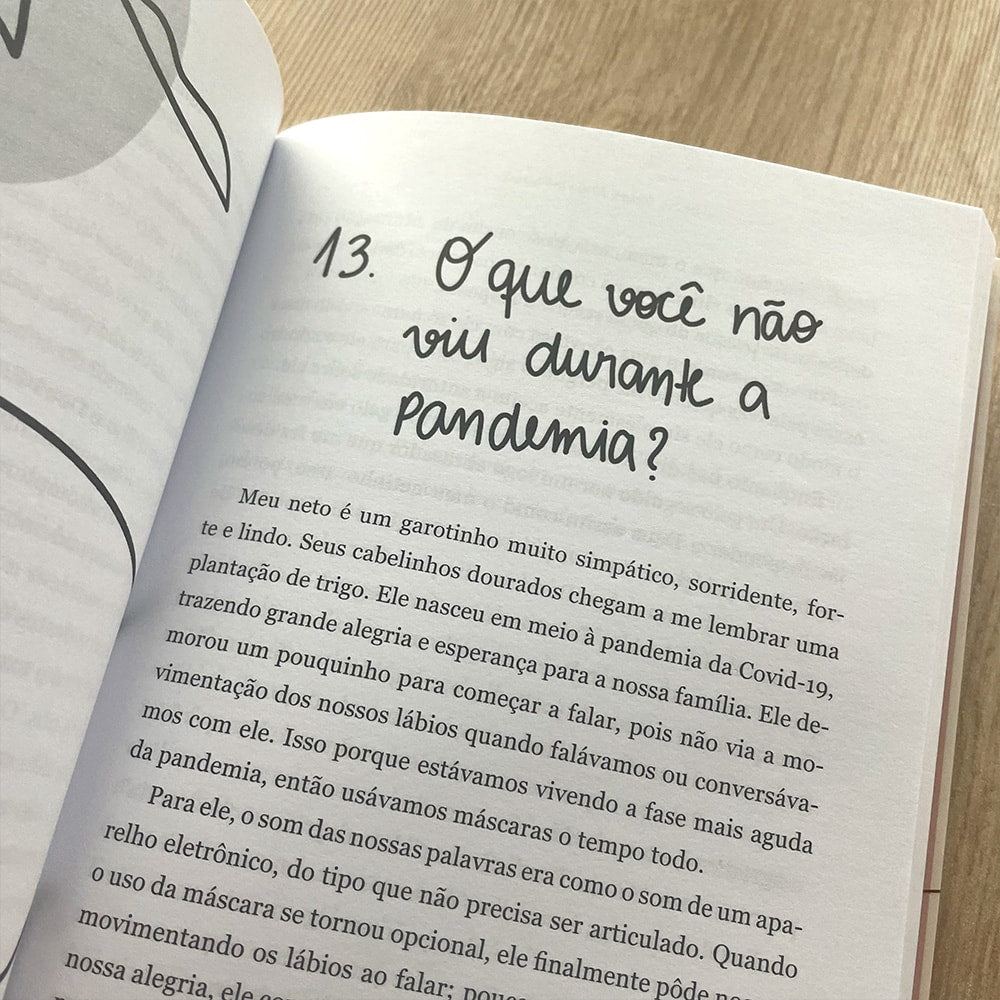 13. O que você não
viu durante a
pandemia?
Meu neto é um garotinho muito simpático, sorridente, for-
te e lindo. Seus cabelinhos dourados chegam a me lembrar uma
plantação de trigo. Ele nasceu em meio à pandemia da Covid-19,
trazendo grande alegria e esperança para a nossa família. Ele de-
morou um pouquinho para começar a falar, pois não via a mo-
vimentação dos nossos lábios quando falávamos ou conversáva-
mos com ele. Isso porque estávamos vivendo a fase mais aguda
da pandemia, então usávamos máscaras o tempo todo.
Para ele, o som das nossas palavras era como o som de um apa-
relho eletrônico, do tipo que não precisa ser articulado. Quando
o uso da máscara se tornou opcional, ele finalmente pôde
movimentando os lábios ao falar;
nossa alegria, ele